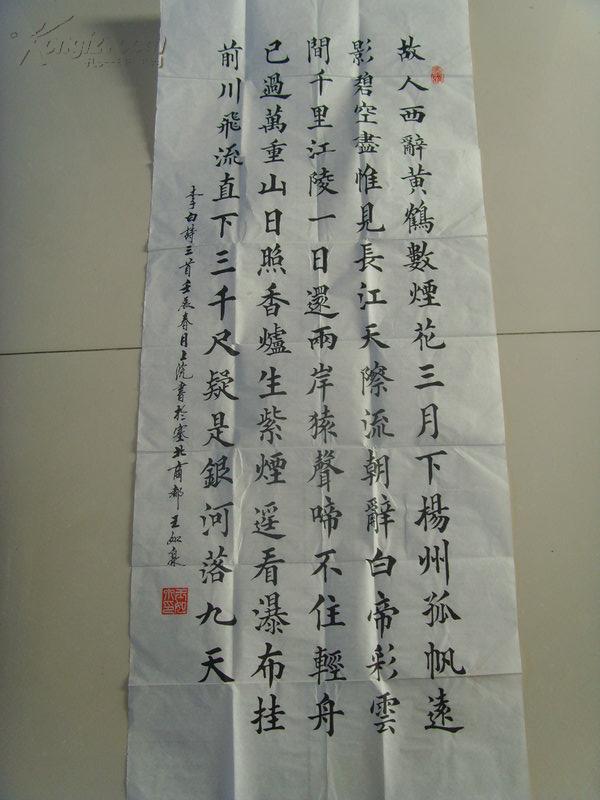 故人西辭黃鶴數煙花三月下楊州孤帆遠
影碧空盡惟見長江天際流朝辭白帝彩雲
間千里江陵一日還兩岸猿聲啼不住輕舟
已過萬重山日照香爐生紫煙遥看瀑布挂
前川飛流直下三千尺疑是銀河落九天
李白詩三首壬辰春月上浣書於塞北商都王如豪